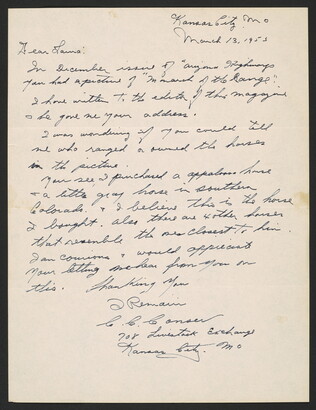 Kansas City, Mo
March 13, 1953
Dear Laura:
In December issue of "Arizona Highways
you had a picture of "Monarch of the Range".
I have written to the editor of this magazine
& he gave me your address.
I was wondering if you could tell
me who ranged & owned the horses
in the picture.
You see, I purchased a appaloosa horse
& a little gray horse in southern
Colorado, & I believe this is the horse
I bought. Also there are 4 other horses
that resemble the ones closest to him.
I am curious & would appreciate
your letting me hear from you on
this. Thanking you
I Remain
C. C. Conser
708 Livestock Exchange
Kansas City, Mo